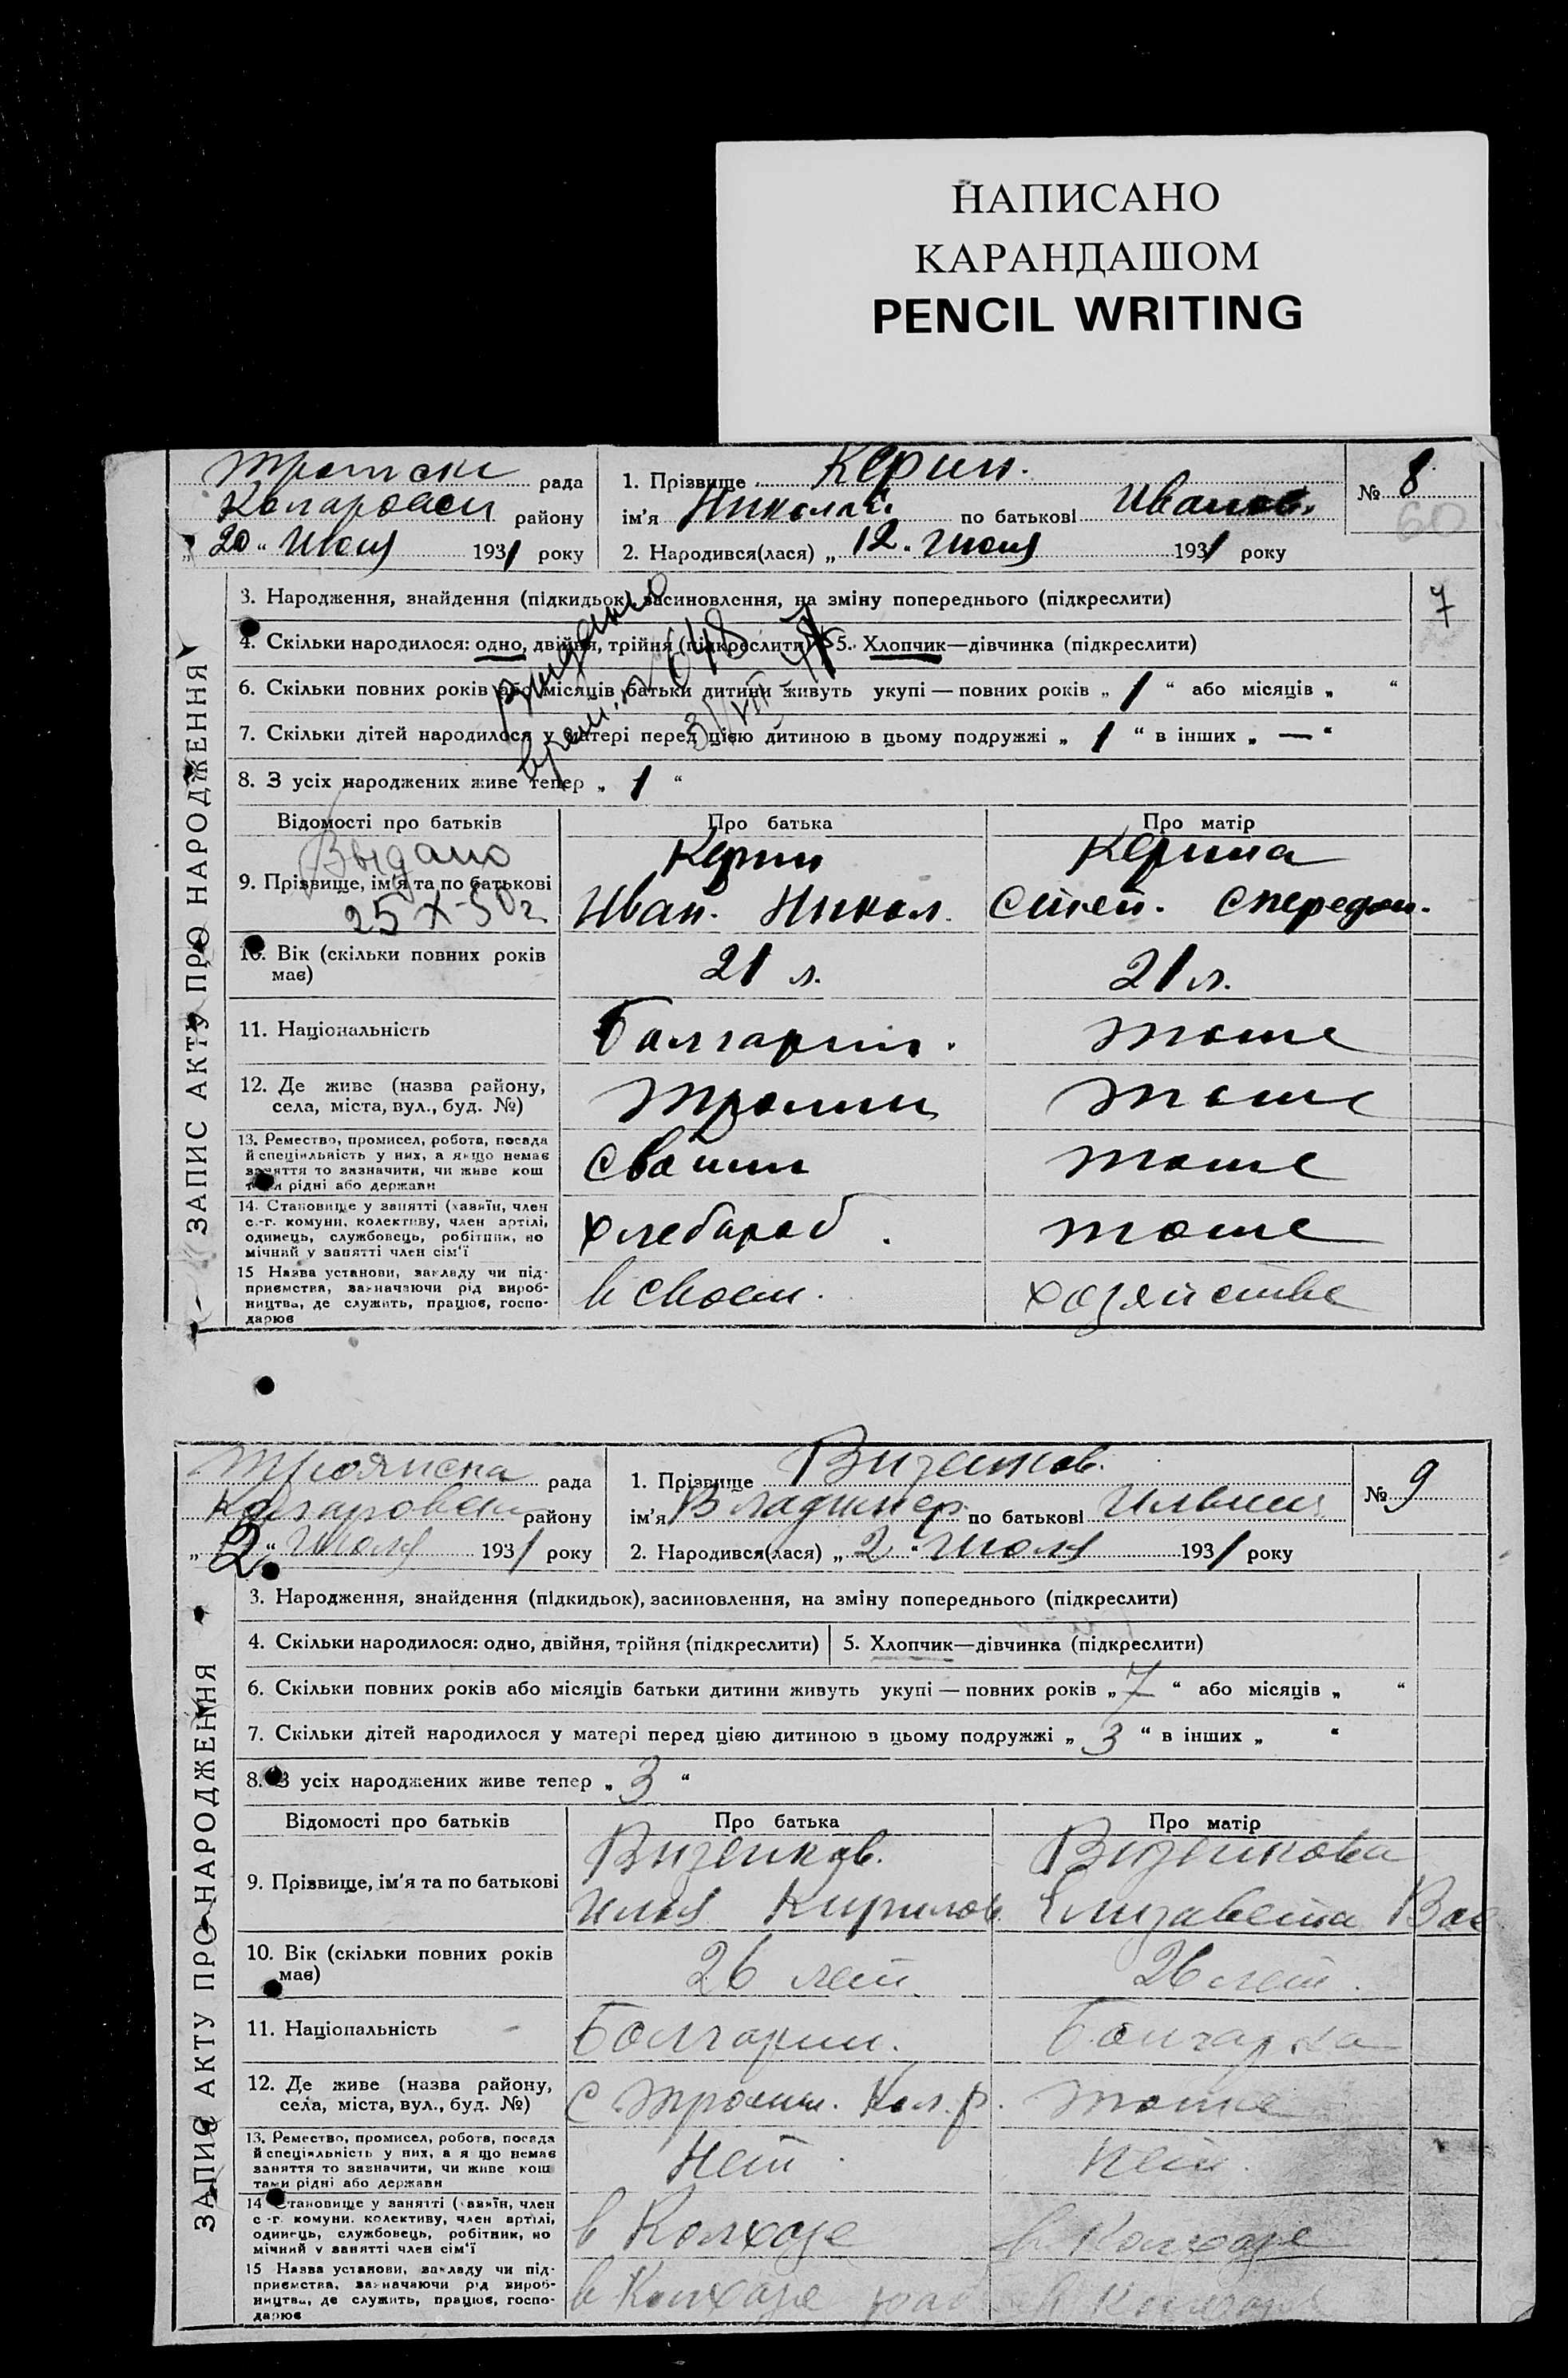 НАПИСАНО
КАРАНДАШОМ
PENCIL WRITING
рада
району
„ 20 “ Июня 1931 року
1. Прізвище Керин.
ім'я Николай по батькові Иванов.
2. Народився(лася) „ 12 “ Июня 1931 року
№ 8
60
7
ЗАПИС АКТУ ПРО НАРОДЖЕННЯ
3. Народження, знайдення (підкидьок), засиновлення, на зміну попереднього (підкреслити)
4. Скільки народилося: одно, двійня, трійня (підкреслити) 5. Хлопчик—дівчинка (підкреслити)
6. Скільки повних років або місяців батьки дитини живуть укупі — повних років „ 1 “ або місяців „ “
7. Скільки дітей народилося у матері перед цією дитиною в цьому подружжі „ 1 “ в інших „ — “
8. З усіх народжених живе тепер „ 1 “
Відомості про батьків Про батька Про матір
Выдано
25 X-50 г.
9. Прізвище, ім'я та по батькові
Керин
Иван. Никол.
Керина
Степ. Спередон.
10. Вік (скільки повних років має) 21 л. 21 л.
11. Національність Балгарин. тоже
12. Де живе (назва району, села, міста, вул., буд. №) Троян тоже
13. Ремество, промисел, робота, посада
й спеціяльність у них, а якщо немає
заняття то зазначити, чи живе кош
тами рідні або держави
тоже
14. Становище у занятті (хазяїн, член
с.-г. комуни, колективу, член артілі,
одинець, службовець, робітник, по
мічний у занятті член сім'ї
хлебароб. тоже
15 Назва установи, закладу чи під-
приємства, зазначаючи рід вироб-
ництва, де служить, працює, госпо-
дарює
в своем. хозяйстве
Трояиска рада
району
„ 2 “ Июля 1931 року
1. Прізвище Визенков.
ім'я Владимер по батькові Ильич
2. Народився(лася) „ 2 “ Июля 1931 року
№ 9
ЗАПИС АКТУ ПРО НАРОДЖЕННЯ
3. Народження, знайдення (підкидьок), засиновлення, на зміну попереднього (підкреслити)
4. Скільки народилося: одно, двійня, трійня (підкреслити) 5. Хлопчик—дівчинка (підкреслити)
6. Скільки повних років або місяців батьки дитини живуть укупі — повних років „ 7 “ або місяців „ “
7. Скільки дітей народилося у матері перед цією дитиною в цьому подружжі „ 3 “ в інших „ “
8. З усіх народжених живе тепер „ 3 “
Відомості про батьків Про батька Про матір
9. Прізвище, ім'я та по батькові
Визенков.
Илья Кирилов.
Визенкова
Елизавета Вас
10. Вік (скільки повних років має) 26 лет 26 лет.
11. Національність Болгарин. Болгарка
12. Де живе (назва району, села, міста, вул., буд. №) с Троян. Кол. р. тоже
13. Ремество, промисел, робота, посада
й спеціяльність у них, а я що немає
заняття то зазначити, чи живе кош
тами рідні або держави
Нет. Нет.
14 Становище у занятті (хазяїн, член
с-г. комуни, колективу, член артілі,
одинець, службовець, робітник, по
мічний у занятті член сім'ї
в Колхозе в Колхозе
15 Назва установи, закладу чи під-
приємства, зазначаючи рід вироб-
ництва, де служить, працює, госпо-
дарює
в Колхозе в Колхозе